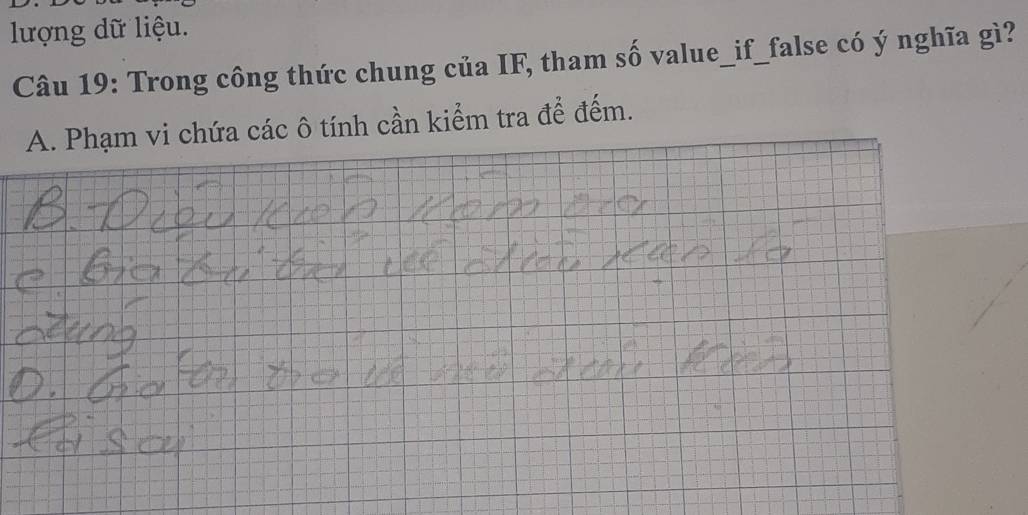 lượng dữ liệu.
Câu 19: Trong công thức chung của IF, tham số value_if_false có ý nghĩa gì?
A. Phạm vi chứa các ô tính cần kiểm tra để đếm.
B. Điều kiện kiểm tra
là
đúng
D. Giá trị trả về nếu điều kiện
là sai